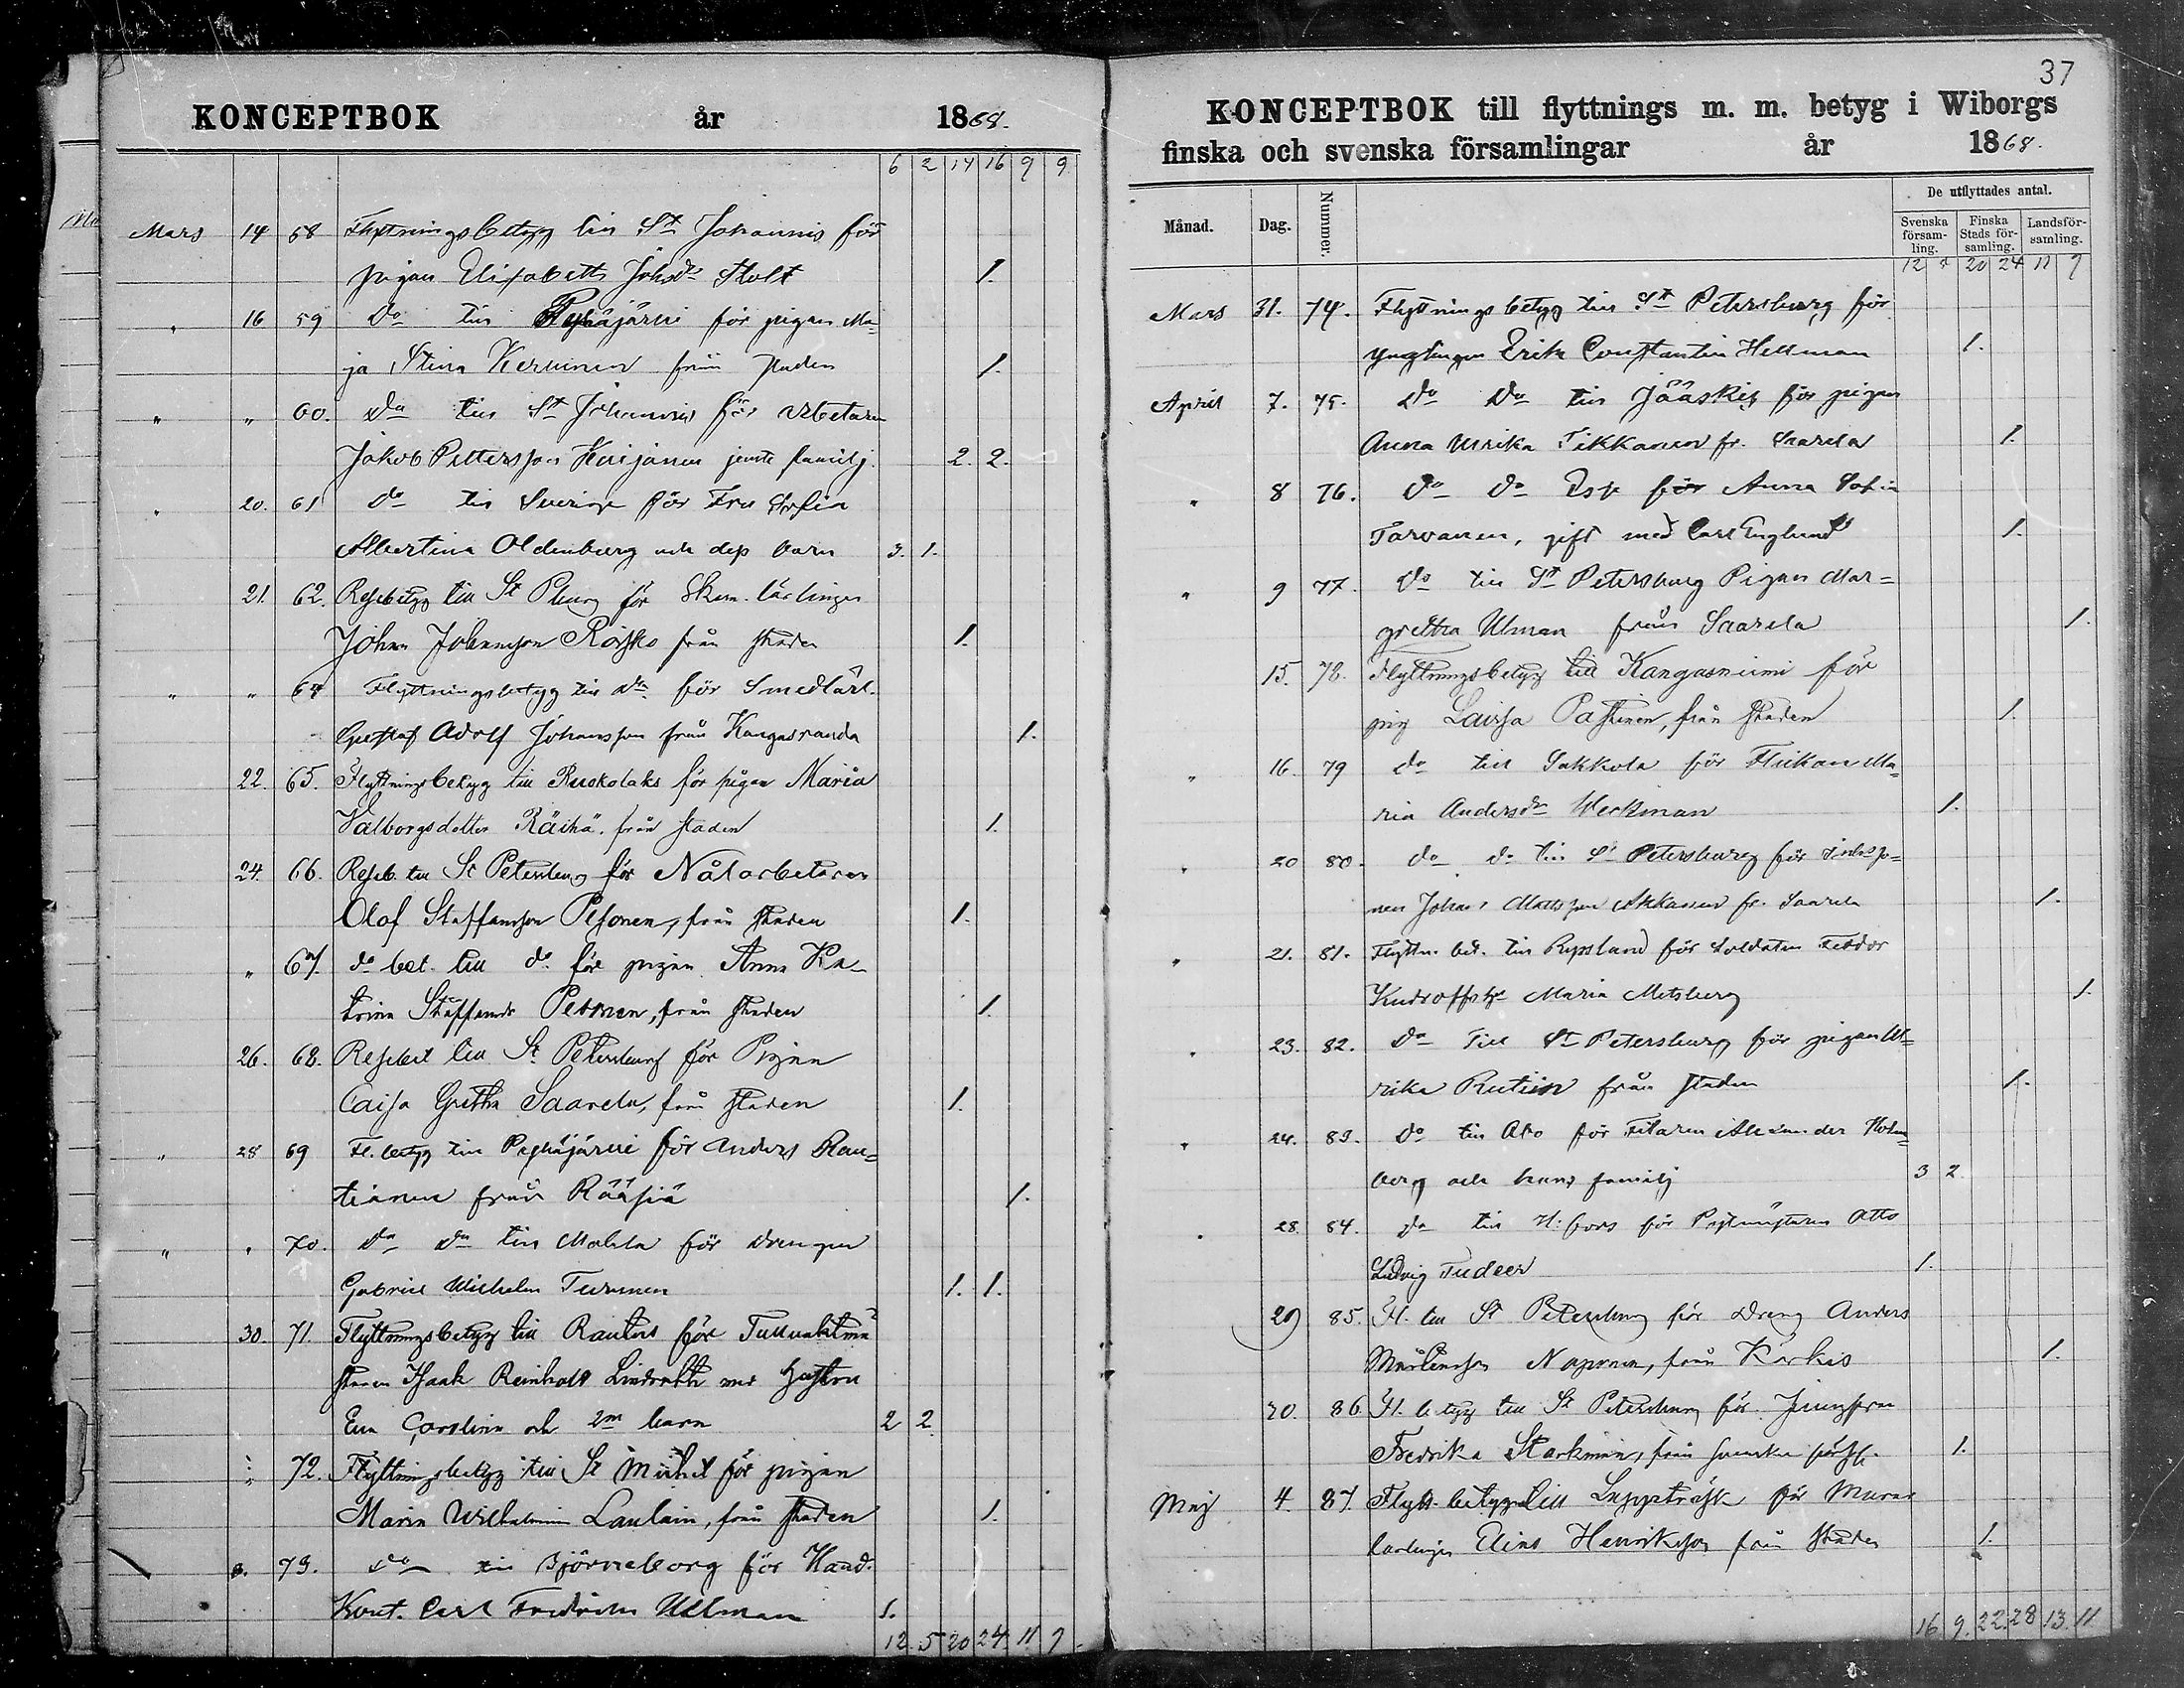 KONCEPTBOK år 1868.
6 2 14 16 9 9
Mars 14 58 Flyttningsbetyg till St Johannis för
pigan Elisabeth Johsdr Stolt 1.
" 16 59 do till Pyhäjärvi för pigan Ma-
ja Stina Kerminen från staden 1.
" " 60. do till St Johannis för arbetaren
Jakob Pettersson jemte familj. 2. 2.
" 20. 61 do till Sverige för Fru Sofia
Albertina Oldenburg och dess barn 3. 1.
21. 62. Resebetyg till St Pburg för Skom. lärlingen
Johan Johansson från staden 1.
" " 64 Flyttningsbetyg till do för Smedlärl.
Gustaf Adolf Johansson från Kangasranda 1.
22. 65. Flyttningsbetyg till Ruokolaks för pigan Maria
Valborgsdotter Räihä, från staden 1.
24. 66. Reseb. till St Petersburg för Nålarbetaren
Olof Staffansson Pesonen, från staden 1.
" 67. do bet. till do för pigan Anna Ka-
trina Staffansdr från staden 1.
26. 68. Resebet till St Petersburg för Pigan
Caisa Gretha Saarela, från staden 1.
" 28 69 Fl. betyg till Pyhäjärvi för Anders Ran-
tianen från 1.
" " 70. do do till Mohla för drengen
Gabriel Wilhelm Turunen 1. 1.
30. 71. Flyttningsbetyg till för
Isaak Reinhold med hustru
Eva Carolina och 2ne barn 2 2
72. Flyttningsbetyg till St Michel för pigan
Maria Wilhelmina från staden 1.
73. do till Björneborg för Hand.
Carl Fredrik Ullman 1.
12. 5 20 24 11 9.
37
KONCEPTBOK till flyttnings m. m. betyg i Wiborgs
finska och svenska församlingar år 1868.
Månad. Dag. Nummer. De utflyttades antal.
Svenska församling. Finska Stads församling. Landsförsamling.
12 5 20 24 11 9
Mars 31. 74. Flyttningsbetyg till St Petersburg för
ynglingen Erik Constantin Hellman 1.
April 7. 75. do do till Jääskis för pigan
Anna Ulrika Tikkanen fr. Saarela 1.
" 8 76. do do för Anna Sofia
Tarvanen, gift med Carl Englund 1.
" 9 77. do till St Petersburg Pigan Mar=
gretha Ulman från Saarela 1.
15. 78. Flyttningsbetyg till Kangasniemi för
pig Caisa från staden 1.
" 16. 79 do till Sakkola för Flickan Ma-
ria Andersdr Weckman 1.
" 20 80. do do till St Petersburg för
Johan Mattsson fr. Saarela 1.
" 21. 81. Flyttn. bet. till Ryssland för Soldaten Feodor
Maria Metsberg 1.
" 23. 82. do till St Petersburg för pigan Ul=
rika från staden 1.
" 24. 83. do till Åbo för Alexander Holm-
berg och hans familj 3 2.
" 28. 84. do till H:fors för Otto
Ludvig Tudeer 1.
29 85. Fl. till St Petersburg för Dreng Anders
från 1.
30. 86. Fl. betyg till St Petersburg för Jungfrun
Fredrika Starkman, från svenska förs. 1.
Maj 4 87. Flytt. betyg till Lappträsk för Murar
Henriksson från staden 1.
16. 9. 22. 28 13. 11